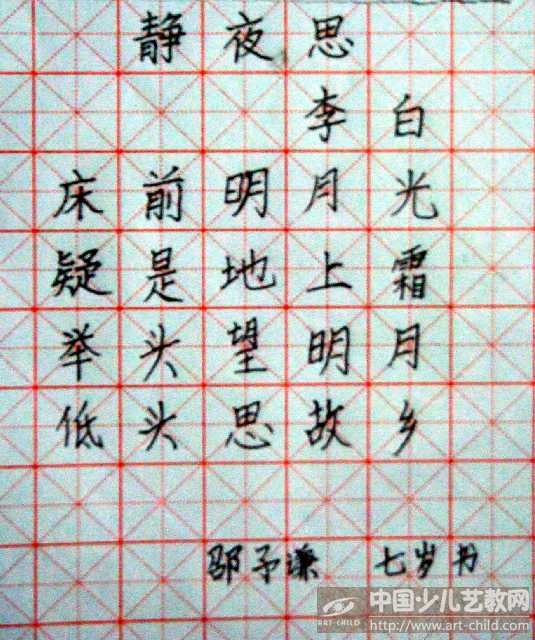 静夜思
李白
床前明月光
疑是地上霜
举头望明月
低头思故乡
邵予谦 七岁书
ART-CHILD 中国少儿艺教网
http://www.art-child.com